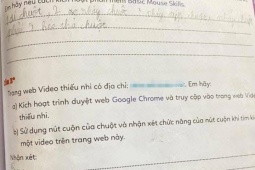 Em hãy nêu cách kích hoạt phần mềm Basic Mouse Skills.
chuột, 2 nháy chuột
4 kéo thả chuột
Trang web Video thiếu nhi có địa chỉ: Em hãy:
a) Kích hoạt trình duyệt web Google Chrome và truy cập vào trang web Video
thiếu nhi.
b) Sử dụng nút cuộn của chuột và nhận xét chức năng của nút cuộn khi tìm
một video trên trang web này.
Nhận xét: